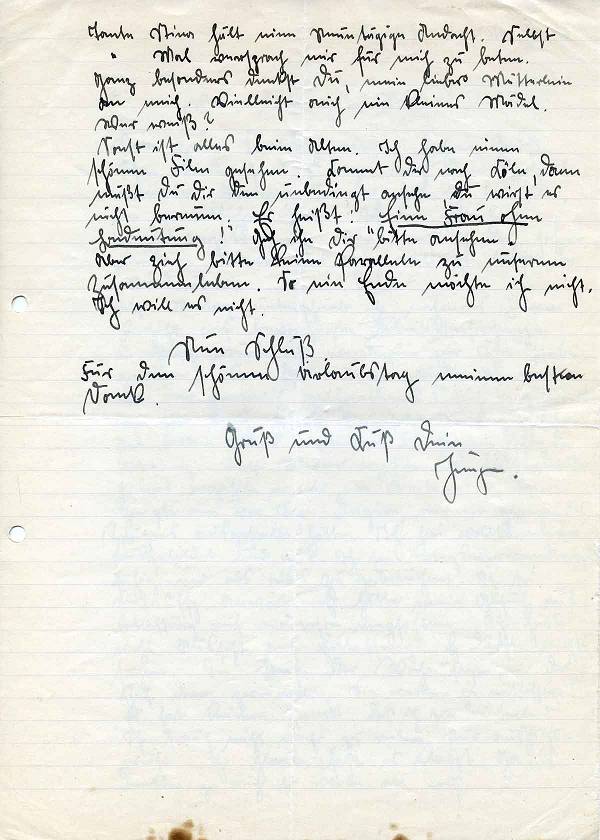 Tante Stina hält eine neuntägige Andacht. Selbst
" Mal versprach mir für mich zu beten.
Ganz besonders denkst Du, mein liebes Mütterlein
an mich. Vielleicht auch ein kleines Mädel.
Wer weiß?
Sonst ist alles beim Alten. Ich habe einen
schönen Film gesehen. Kommt der nach Köln, dann
mußt Du Dir den unbedingt ansehen, Du wirst es
nicht bereuen. Er heißt: "Eine Frau ohne
Bedeutung!" Geh ihn Dir bitte ansehen.
Aber zieh bitte keine Parallele zu unserem
Zusammenleben. So ein Ende möchte ich nicht.
Ich will es nicht.
Nun Schluß.
Für den schönen Urlaubstag meinen besten
Dank.
Gruß und Kuß Dein
Junge.